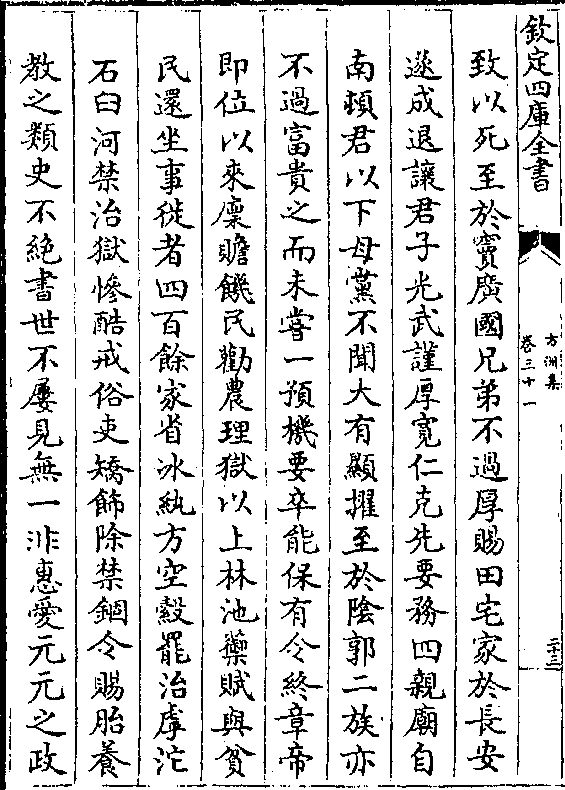 欽定四庫全書
方洲集
卷三十一
二十三
致以死至於竇廣國兄弟不過厚賜田宅家於長安
遂成退讓君子光武謹厚寛仁克先要務四親廟自
南頓君以下母黨不聞大有顯擢至於陰郭二族亦
不過富貴之而未嘗一預機要卒能保有令終章帝
即位以來廪贍饑民勸農理獄以上林池籞賦與貧
民還坐事徙者四百餘家省冰紈方空縠罷治虖沱
石臼河禁治獄慘酷戒俗吏矯飾除禁錮令賜胎養
教之類史不絶書世不屢見無一非惠愛元元之政